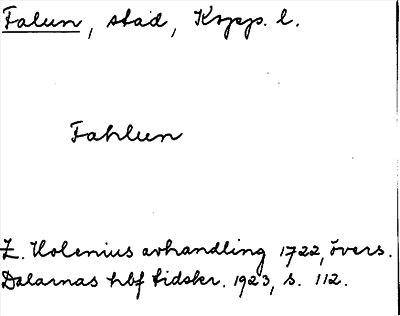 Falun, stad, Kopp. l.
Fahlun
Z. Holenius avhandling 1722, övers.
Dalarnas hbf tidskr. 1923, s. 112.